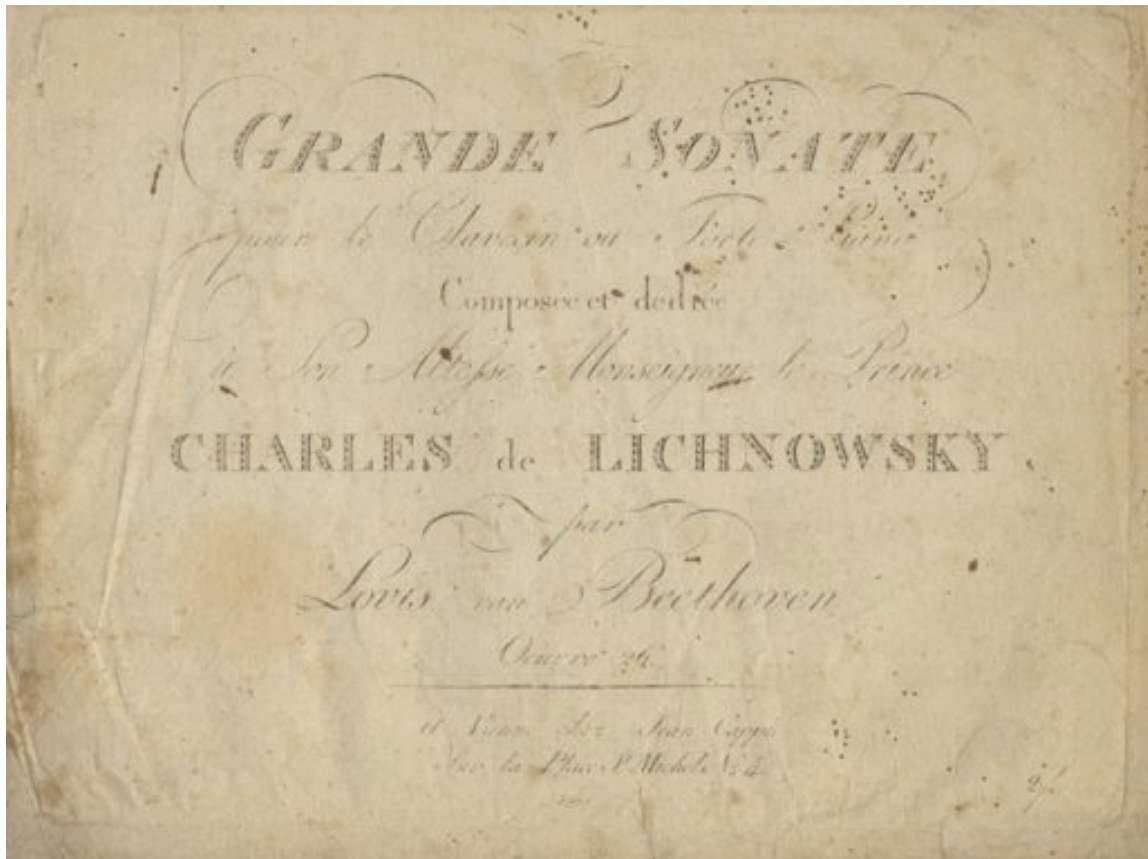 GRANDE SONATE
pour le Clavecin ou Forte Piano
Composée et dediée
à Son Altesse Monseigneur le Prince
CHARLES de LICHNOWSKY
par
Louis van Beethoven
Oeuvre 26
à Vienne chez Jean Cappi
Sur la Place St Michel No 4